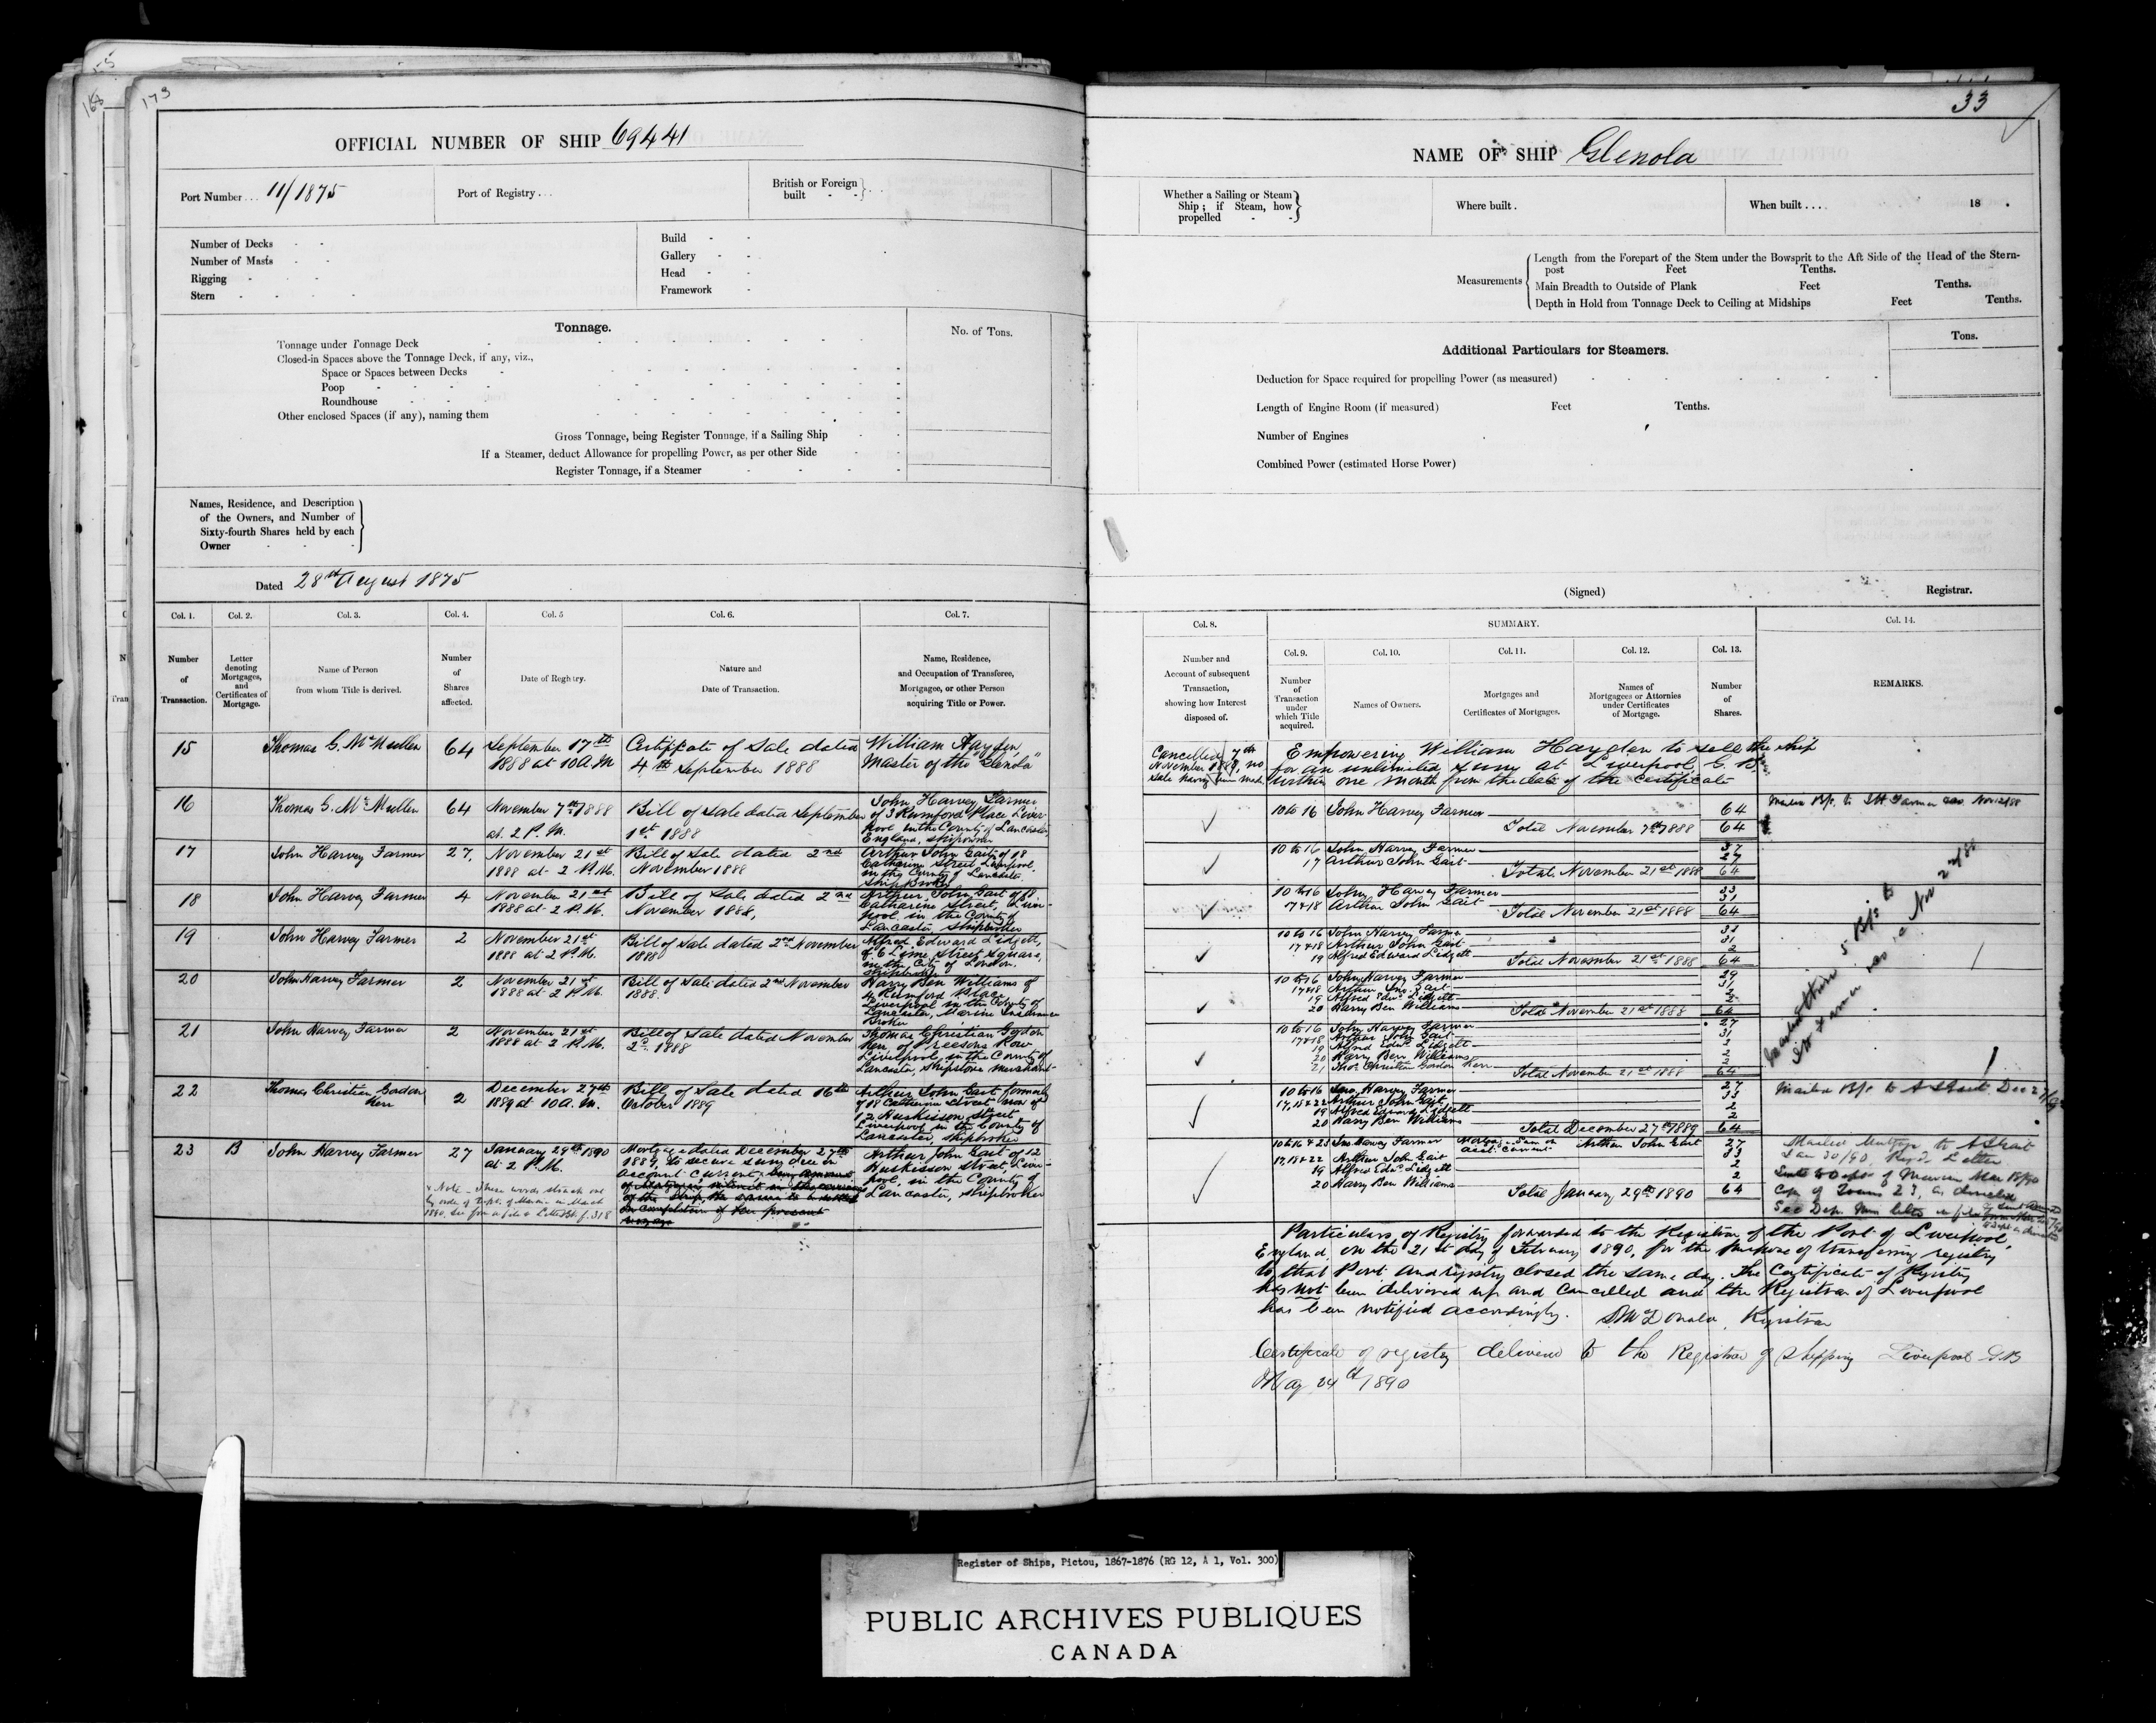 173
OFFICIAL NUMBER OF SHIP 69441
Port Number . . . 11/1875
Port of Registry . . .
British or Foreign
built - -
Number of Decks - -
Number of Masts - -
Rigging - - -
Stern - - - -
Build - -
Gallery - -
Head - -
Framework -
Tonnage.
No. of Tons.
Tonnage under Tonnage Deck
Closed-in Spaces above the Tonnage Deck, if any, viz.,
Space or Spaces between Decks
Poop
Roundhouse
Other enclosed Spaces (if any), naming them
Gross Tonnage, being Register Tonnage, if a Sailing Ship
If a Steamer, deduct Allowance for propelling Power, as per other Side
Register Tonnage, if a Steamer
Names, Residence, and Description
of the Owners, and Number of
Sixty-fourth Shares held by each
Owner
Dated 28th August 1875
Col. 1. Col. 2. Col. 3. Col. 4. Col. 5 Col. 6. Col. 7.
Number
of
Transaction.
Letter
denoting
Mortgages,
and
Certificates of
Mortgage.
Name of Person
from whom Title is derived.
Number
of
Shares
affected.
Date of Registry.
Nature and
Date of Transaction.
Name, Residence,
and Occupation of Transferee,
Mortgagee, or other Person
acquiring Title or Power.
15 Thomas G. McMullen 64
September 17th
1888 at 10 A.M
Certificate of Sale dated
4th September 1888
William Hayden,
Master of the "Glenola"
16 Thomas G. McMullen 64
November 7th 1888
at 2 P.M.
Bill of Sale dated September
1st 1888
John Harvey Farmer
of 3 Rumford Place Liver-
pool in the County of Lancaster
England, shipowner
17 John Harvey Farmer 27,
November 21st
1888 at 2 P.M.
Bill of Sale dated 2nd
November 1888
Arthur John Gait of 18
Catharine Street, Liverpool,
in the County of Lancaster
Ship Broker
18 John Harvey Farmer 4
November 21st
1888 at 2 P.M.
Bill of Sale dated 2nd
November 1888,
Arthur John Gait of 18
Catharine Street, Liver-
pool, in the County of
Lancaster, Shipbroker
19 John Harvey Farmer 2
November 21st
1888 at 2 P.M.
Bill of Sale dated 2nd November
1888
Alfred Edward Lidgett,
of 6 Lime Street Square,
in the City of London,
Shipbroker
20 John Harvey Farmer 2
November 21st
1888 at 2 P.M.
Bill of Sale dated 2nd November
1888.
Harry Ben Williams of
4 Rumford Place
Liverpool in the County of
Lancaster, Marine Insurance
Broker
21 John Harvey Farmer 2
November 21st
1888 at 2 P.M.
Bill of Sale dated November
2d 1888
Thomas Christian Gordon
Kerr, of Preesons Row
Liverpool, in the County of
Lancaster, Shipstore Merchant
22 Thomas Christian Gordon
Kerr
2
December 27th
1889 at 10 A.M.
Bill of Sale dated 16th
October 1889
Arthur John Gait formerly
of 18 Catharine Street now of
12 Huskisson Street
Liverpool in the County of
Lancaster, Shipbroker
23 B John Harvey Farmer 27
January 29th 1890
at 2 P.M.
Mortgage dated December 27th
1889, to secure sum due on
account current,
on completion of her present
voyage
Arthur John Gait of 12
Huskisson Street, Liver-
pool, in the County of
Lancaster, Shipbroker
x Note - These words struck out
by order of Dept. of Marine in March
1890. See
33
NAME OF SHIP Glenola
Whether a Sailing or Steam
Ship ; if Steam, how
propelled
Where built .
When built . . . . 18 .
Measurements
Length from the Forepart of the Stem under the Bowsprit to the Aft Side of the Head of the Stern-
post Feet Tenths.
Main Breadth to Outside of Plank Feet Tenths.
Depth in Hold from Tonnage Deck to Ceiling at Midships Feet Tenths.
Additional Particulars for Steamers.
Tons.
Deduction for Space required for propelling Power (as measured)
Length of Engine Room (if measured) Feet Tenths.
Number of Engines
Combined Power (estimated Horse Power)
(Signed) Registrar.
Col. 8. SUMMARY. Col. 14.
Number and
Account of subsequent
Transaction,
showing how Interest
disposed of.
Col. 9. Col. 10. Col. 11. Col. 12. Col. 13.
Number
of
Transaction
under
which Title
acquired.
Names of Owners.
Mortgages and
Certificates of Mortgages.
Names of
Mortgagees or Attornies
under Certificates
of Mortgage.
Number
of
Shares.
REMARKS.
Cancelled 7th
November 1888, no
Sale having been made
Empowering William Hayden to sell the ship
for an unlimited sum at Liverpool, G.B.,
within one month from the date of the Certificate
10 to 16 John Harvey Farmer 64
Total November 7th 1888 64
10 to 16 John Harvey Farmer 37
17 Arthur John Gait 27
Total November 21st 1888 64
10 to 16 John Harvey Farmer 33
17 & 18 Arthur John Gait 31
Total November 21st 1888 64
10 to 16 John Harvey Farmer 31
17 & 18 Arthur John Gait 31
19 Alfred Edward Lidgett 2
Total November 21st 1888 64
10 to 16 John Harvey Farmer 29
17 & 18 Arthur Jno. Gait 31
19 Alfred Edwd. Lidgett 2
20 Harry Ben Williams 2
Total November 21st 1888 64
10 to 16 John Harvey Farmer 27
17 & 18 Arthur John Gait 31
19 Alfred Edwd. Lidgett 2
20 Harry Ben Williams 2
21 Thos. Christian Gordon Kerr 2
Total November 21st 1888 64
10 to 16 Jno. Harvey Farmer 27
17, 18 & 22 Arthur John Gait 33
19 Alfred Edward Lidgett 2
20 Harry Ben Williams 2
Total December 27th 1889 64
10 to 16 & 23 Jno. Harvey Farmer Arthur John Gait 27
acct. current
17, 18 & 22 Arthur John Gait 33
19 Alfred Edwd. Lidgett 2
20 Harry Ben Williams 2
Total January 29th 1890 64
Particulars of Registry forwarded to the Registrar of the Port of Liverpool,
England, on the 21st day of February 1890, for the purpose of transferring registry
to that Port and registry closed the same day. The Certificate of Registry
has not been delivered up and cancelled and the Registrar of Liverpool
has been notified accordingly. McDonald, Registrar
Certificate of registry delivered to the Registrar of Shipping Liverpool G.B
May 24th 1890
Register of Ships, Pictou, 1867-1876 (RG 12, A 1, Vol. 300)
PUBLIC ARCHIVES PUBLIQUES
CANADA